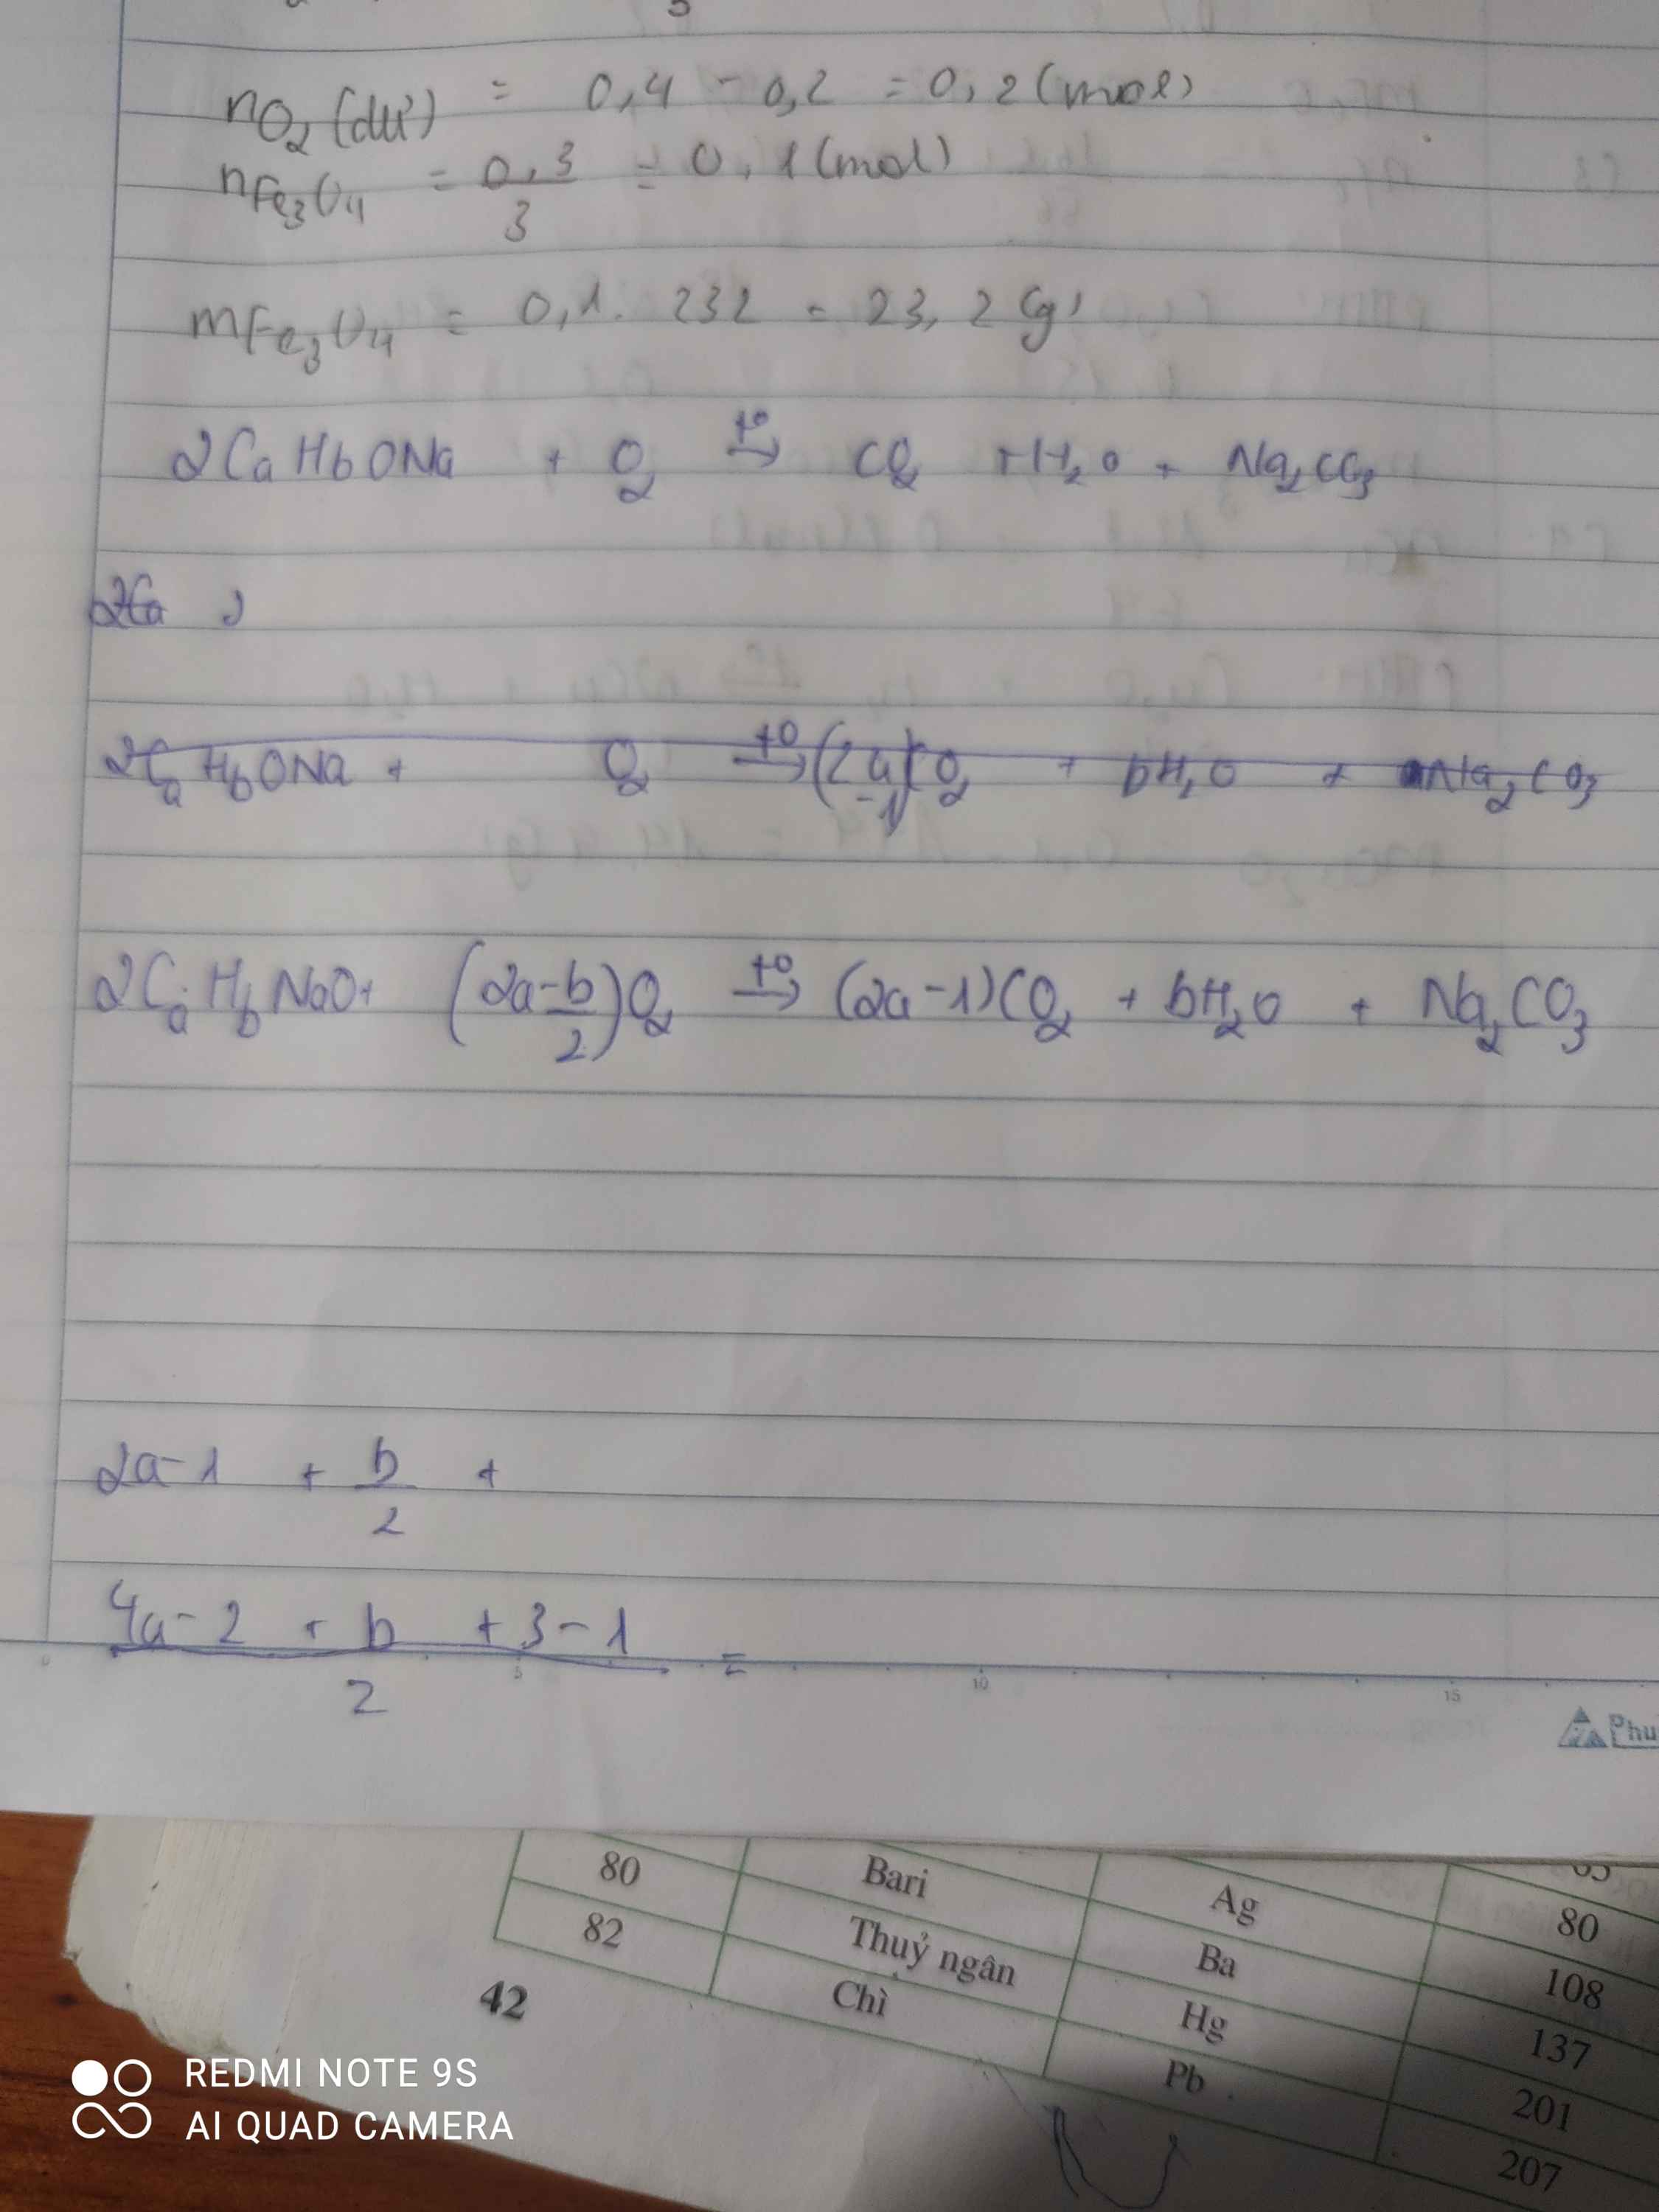 nO₂ (dư) = 0,4 - 0,2 = 0,2 (mol)
nFe₃O₄ = 0,3/3 = 0,1 (mol)
mFe₃O₄ = 0,1. 232 = 23,2 (g)
2CaHbONa + O₂ t°→ CO₂ + H₂O + Na₂CO₃
2Ca
2CaHbONa + O₂ t°→ (2a-1)CO₂ + bH₂O + Na₂CO₃
2CaHbNaO + (2a-b/2)O₂ t°→ (2a-1)CO₂ + bH₂O + Na₂CO₃
2a-1 + b/2 +
(4a-2 + b + 3-1)/2 =
0 5 10 15
Phu
80 Bari Ag 80
82 Thuỷ ngân Ba 108
Chì Hg 137
Pb 201
207
42
REDMI NOTE 9S
AI QUAD CAMERA